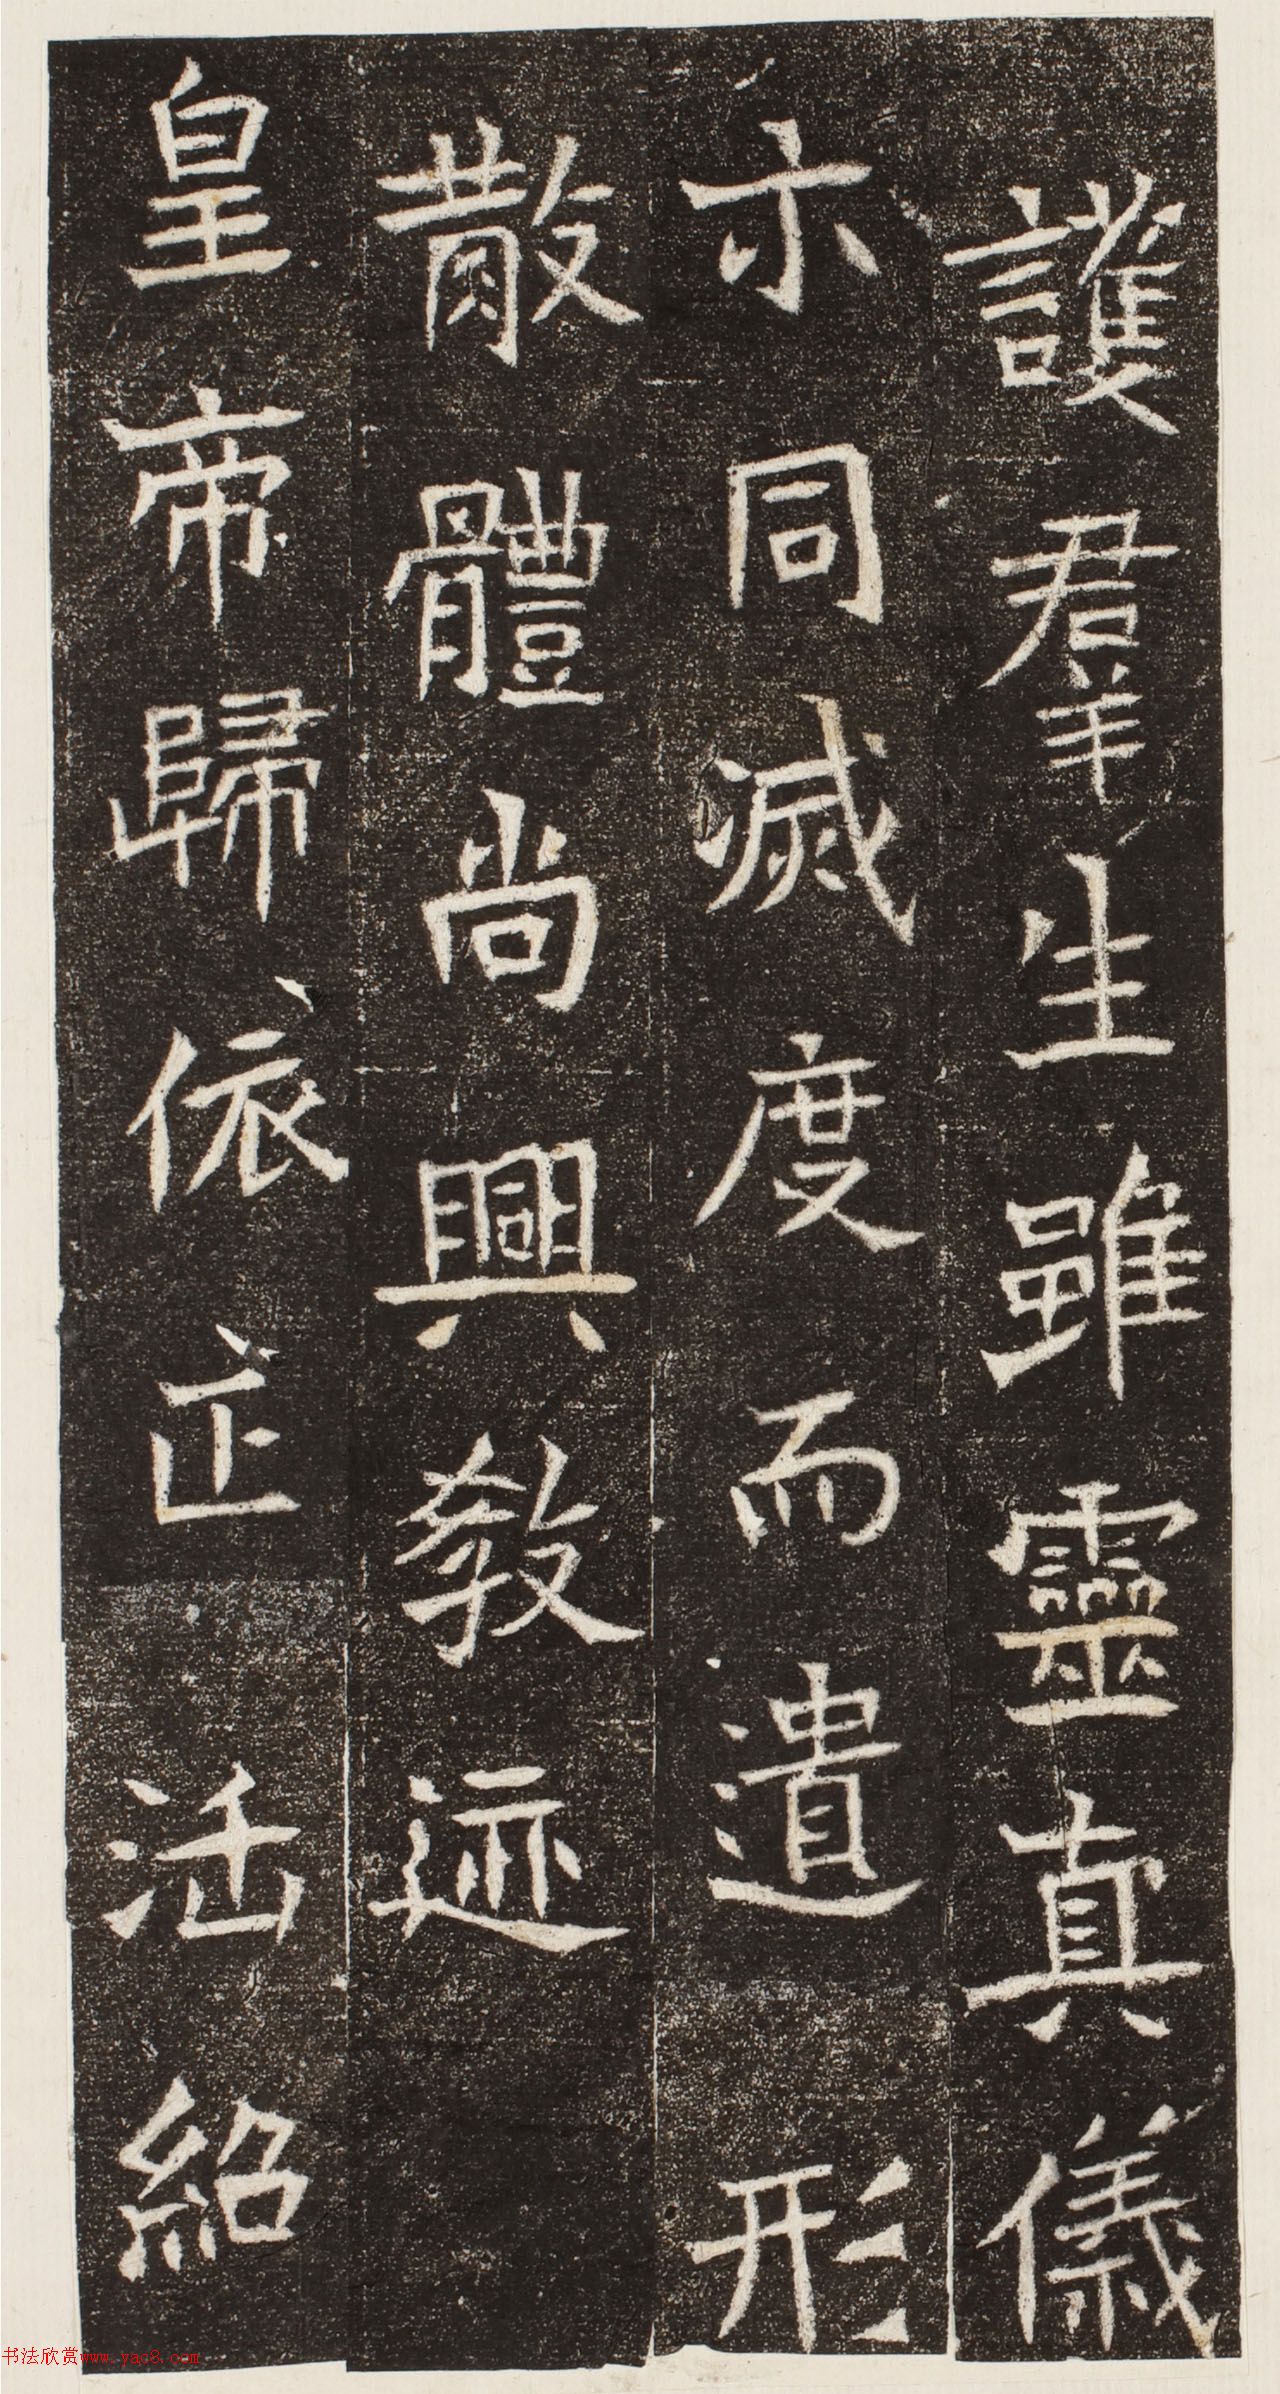 護羣生雖靈真儀
示同滅度而遺形
散體尚興教迹
皇帝歸依正法紹
书法欣赏www.yac8.com